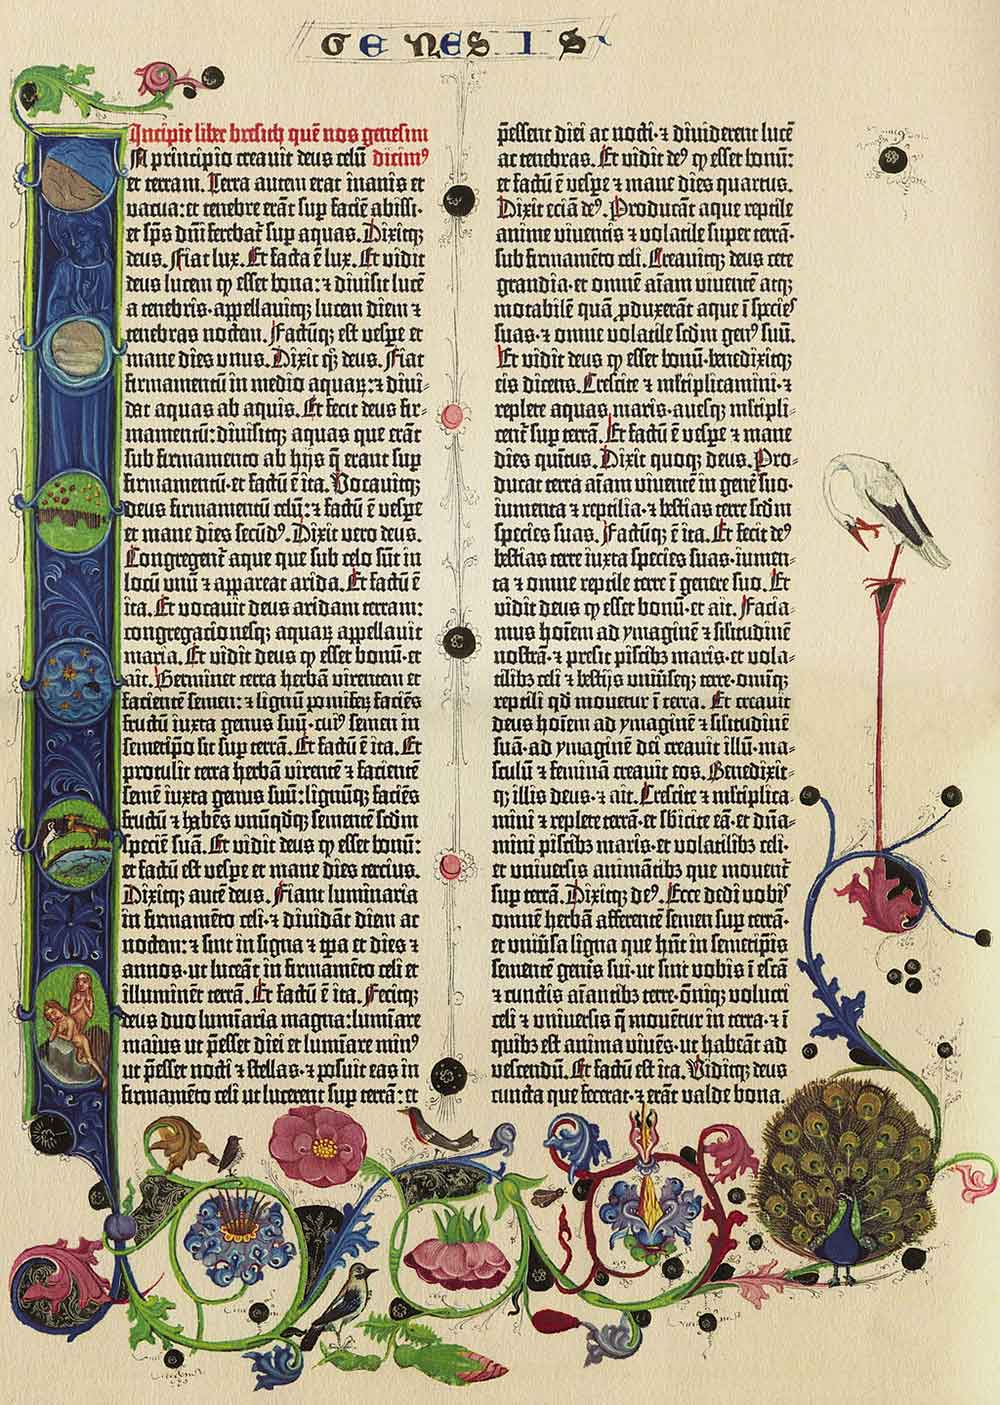 GENESIS
Incipit liber bresith quē nos genesim
IN principio creavit deus celū dicimꝰ
et terram. Terra autem erat inanis et
vacua: et tenebre erāt sup faciē abissi·
et sp̄s dn̄i ferebat̄ sup aquas. Dixitqꝫ
deus. Fiat lux. Et facta ē lux. Et vidit
deus lucem ꝙ esset bona: ⁊ divisit lucē
a tenebris· appellavitqꝫ lucem diem ⁊
tenebras noctem. Factūqꝫ est vesꝑe et
mane dies unus. Dixit qꝫ deus. Fiat
firmamentū in medio aquaꝝ: ⁊ divi-
dat aquas ab aquis. Et fecit deus fir-
mamentū: divisitqꝫ aquas que erāt
sub firmamento ab hijs q̄ erant sup
firmamentū· et factū ē ita. Vocavitqꝫ
deus firmamentū celū: ⁊ factū ē vesꝑe
et mane dies secūdꝰ. Dixit vero deus.
Congregent̄ aque que sub celo sūt in
locū unū ⁊ appareat arida. Et factū ē
ita. Et vocavit deus aridam terram:
congregacionesqꝫ aquaꝝ appellavit
maria. Et vidit deus ꝙ esset bonū· et
ait. Germinet terra herbā virentem et
facientē semen: ⁊ lignū pomiferū faciēs
fructū iuxta genus suū· cuiꝰ semen in
semetipō sit sup terrā. Et factū ē ita. Et
protulit terra herbā virentē ⁊ facientē
semē iuxta genus suū: lignūqꝫ faciēs
fructū ⁊ habēs unūqdqꝫ sementē scdm
speciē suā. Et vidit deus ꝙ esset bonū:
et factū est vesꝑe et mane dies tercius.
Dixitqꝫ autē deus. Fiant luminaria
in firmamēto celi· ⁊ dividāt diem ac
noctem: ⁊ sint in signa ⁊ tꝑa et dies ⁊
annos· ut luceāt in firmamēto celi et
illuminēt terrā. Et factū ē ita. Fecitqꝫ
deus duo lumīaria magna: lumīare
maius ut p̄esset diei et lumīare minꝰ
ut p̄esset nocti ⁊ stellas· ⁊ posuit eas in
firmamēto celi ut lucerent sup terrā: et
p̄essent diei ac nocti· ⁊ dividerent lucē
ac tenebras. Et vidit deꝰ ꝙ esset bonū:
et factū ē vesꝑe ⁊ mane dies quartus.
Dixit eciā deꝰ. Producāt aque reptile
anime viventis ⁊ volatile super terrā·
sub firmamēto celi. Creavitqꝫ deus cete
grandia· et omnē aīam viventē atqꝫ
motabilē quā ꝓduxerāt aque ī speciēs
suas· ⁊ omne volatile scdm genꝰ suū.
Et vidit deus ꝙ esset bonū· benedixitqꝫ
eis dicens. Crescite ⁊ mltiplicamini· ⁊
replete aquas maris· avesqꝫ mltipli-
cent̄ sup terrā. Et factū ē vesꝑe ⁊ mane
dies quintus. Dixit quoqꝫ deus. Pro-
ducat terra aīam viventē in genē suo·
iumenta ⁊ reptilia· ⁊ bestias terre scdm
species suas. Factūqꝫ ē ita. Et fecit deꝰ
bestias terre iuxta species suas· iumen-
ta ⁊ omne reptile terre ī genere suo. Et
vidit deus ꝙ esset bonū· et ait. Facia-
mus hoīem ad ymaginē ⁊ silitudinē
nostrā· ⁊ presit piscibꝫ maris· et vola-
tilibꝫ celi ⁊ bestijs universeqꝫ terre· omīqꝫ
reptili qd movetur ī terra. Et creavit
deus hoīem ad ymaginē ⁊ silitudinē
suā· ad ymaginē dei creavit illū· ma-
sculū ⁊ feminā creavit eos. Benedixit-
qꝫ illis deus· ⁊ ait. Crescite ⁊ mltiplica-
mini ⁊ replete terrā· et sbicite eā· et dn̄a-
mini piscibꝫ maris· et volatilibꝫ celi·
et universis animātibꝫ que movent̄
sup terrā. Dixitqꝫ deꝰ. Ecce dedi vobis
omnē herbā afferentē semen sup terrā·
et univsa ligna que hn̄t in semetipīs
sementē genīs sui· ut sint vobis ī escā
⁊ cunctis aīantibꝫ terre· ōmīqꝫ volucri
celi ⁊ universis q̄ movētur in terra· ⁊ ī
quibꝫ est anima vivēs· ut habeāt ad
vescendū. Et factū est ita. Viditqꝫ deus
cuncta que fecerat· ⁊ erāt valde bona.